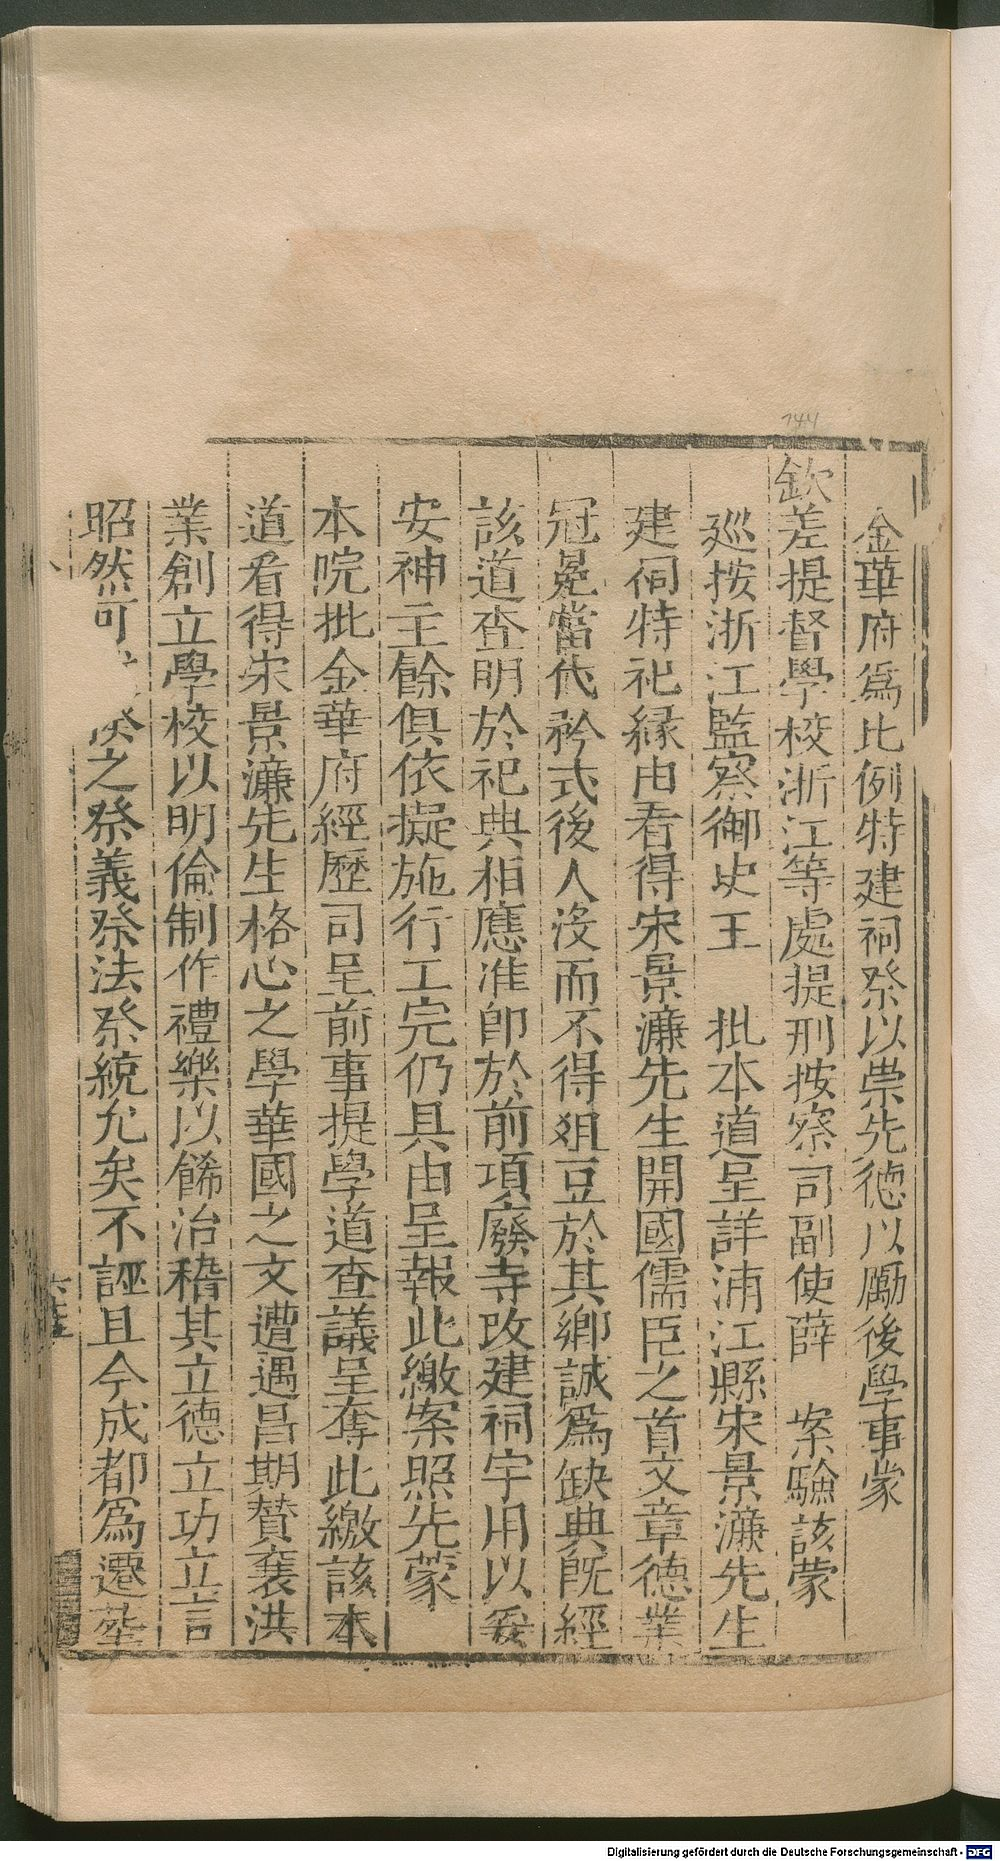 金華府爲比例特建祠祭以崇先徳以勵後學事蒙
欽差提督學校浙江等處提刑按察司副使薛　案驗該蒙
巡按浙江監察御史王　批本道呈詳浦江縣宋景濂先生
建祠特祀縁由看得宋景濂先生開國儒臣之首文章德業
冠冕當代矜式後人沒而不得俎豆於其鄉誠爲缺典旣經
該道查明於祀典相應准卽於前項廢寺改建祠宇用以妥
安神主餘俱依擬施行工完仍具由呈報此繳案照先蒙
本院批金華府經歷司呈前事提學道查議呈奪此繳該本
道看得宋景濂先生格心之學華國之文遭遇昌期賛襄洪
業創立學校以明倫制作禮樂以餙治稽其立德立功立言
昭然可之祭義祭法祭統允矣不誣且今成都爲遷塟
744
Digitalisierung gefördert durch die Deutsche Forschungsgemeinschaft - DFG